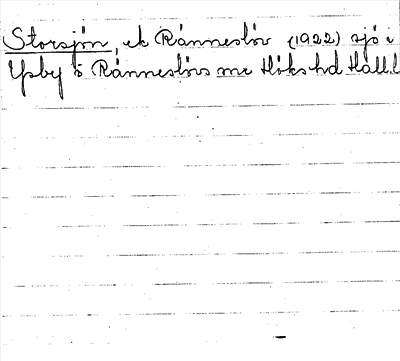 Storsjön, ek Ránneslöv (1922) sjö i
Ysby o Ránneslövs snr Höks hd Hall.l